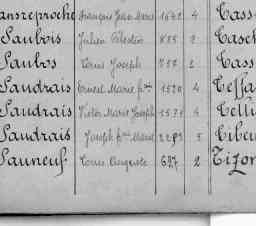 ansreproche François Jean Marie 1542 4 Cass
Saubois Julien Célestin 855 2 Casel
Saubos Louis Joseph 757 2 Cass
Saudrais Ernest Marie 1520 4 Ceffa
Saudrais Victor Marie Joseph 1571 4 Celli
Saudrais Joseph Marie 2283 5 Ciber
Sauneuf Louis Auguste 627 2 Tizon